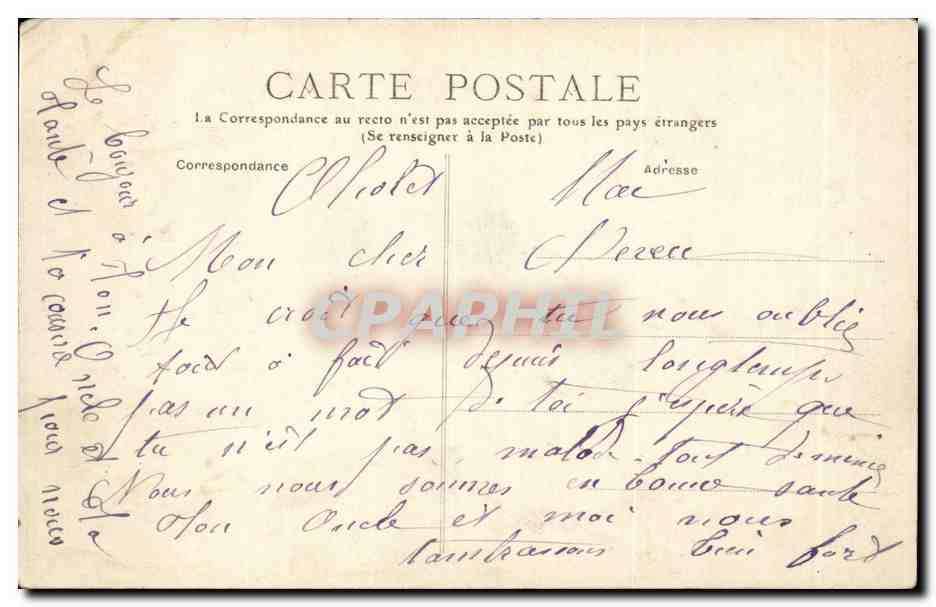 CARTE POSTALE
La Correspondance au recto n'est pas acceptée par tous les pays étrangers
(Se renseigner à la Poste)
Correspondance
Adresse
Cholet Mai
Mon cher Neveu
Je croit que tu nous oublie
tout a fait depuis longtemps
pas un mot de toi j'espère que
tu n'est pas malade tout de même
Nous nous sommes en bonne sante
ton Oncle et moi nous
t'ambrassons bien fort
le bonjour à ton Oncle et ta
tante et ta cousine pour nous
CPAPHIL